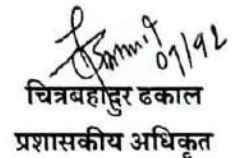 07/12
चित्रबहादुर ढकाल
प्रशासकीय अधिकृत